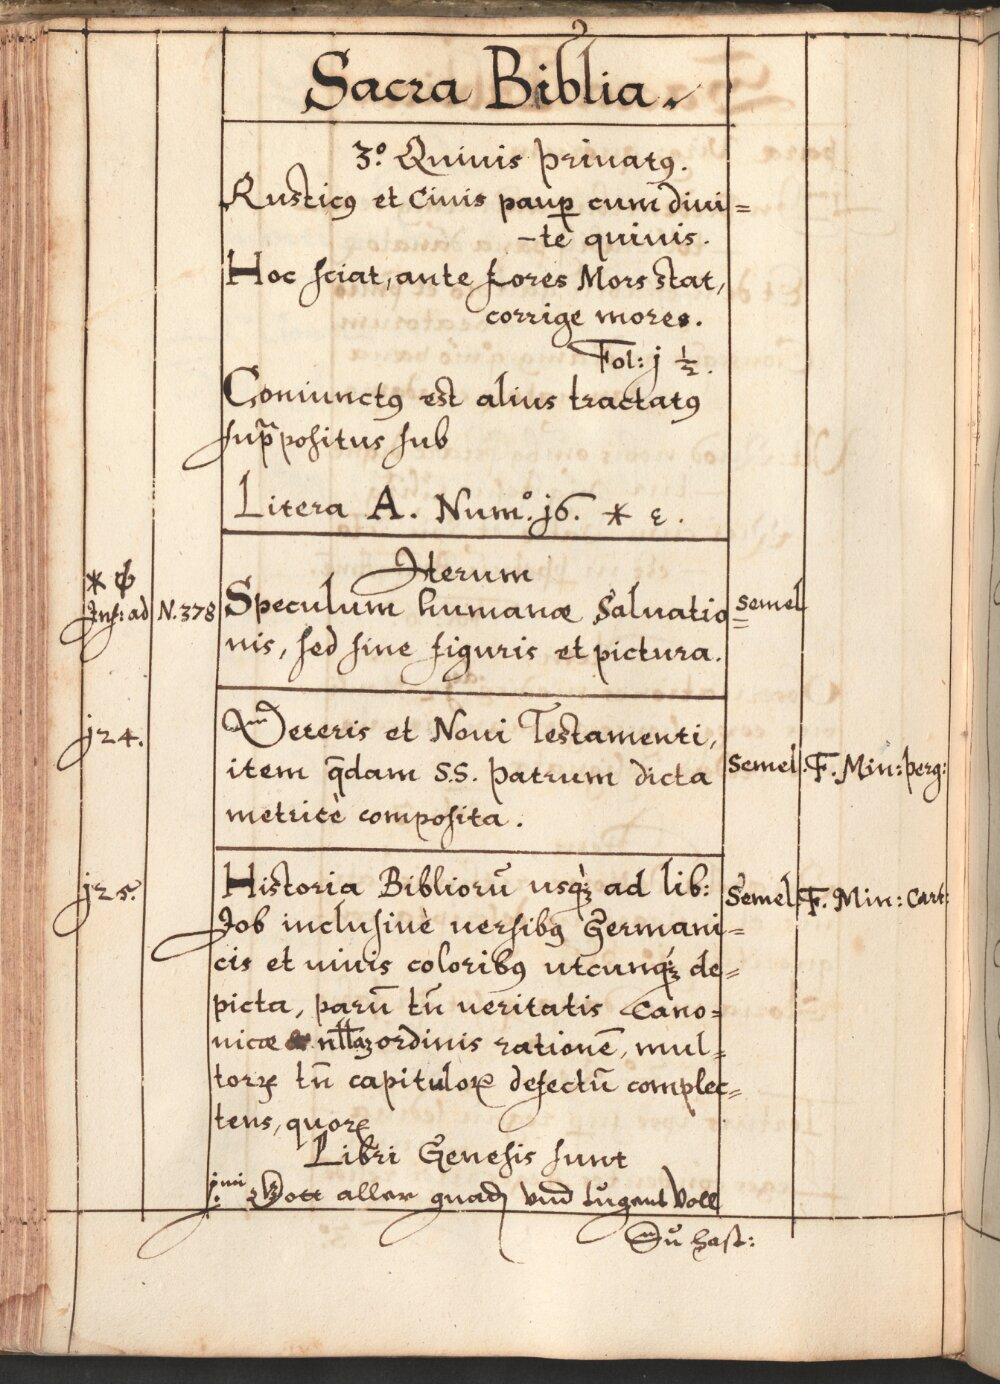 Sacra Biblia.
3º. Quiuis priuatꝰ.
Rusticꝰ et Ciuis paup̱ cum diui=
-te quiuis.
Hoc sciat, ante fores Mors stat,
corrige mores.
Fol: j ½.
Coniunctꝰ est alius tractatꝰ
sup̃positus sub
Litera A. Numº. j6. * ε.
* ₵
Inf: ad N. 378
Iterum
Speculum humanæ Saluatio=
nis, sed sine figuris et pictura.
Semel
j24.
Veteris et Noui Testamenti,
item q̃dam S.S. patrum dicta
metricè composita.
Semel. F. Min: perg:
j25.
Historia Bibliorũ usqꝫ̀ ad lib:
Job inclusiuè uersibꝰ Germani=
cis et uiuis coloribꝰ utcunqꝫ́ de=
picta, parũ tñ ueritatis Cano=
nicæ nllãqꝫ ordinis rationẽ, mul=
torꝝ tñ capitulorꝝ defectũ complec=
tens, quorꝝ
Semel. F. Min: Cart:
Libri Genesis sunt
j.mi Gott aller gnadn vnd tugent Voll
Du hast: